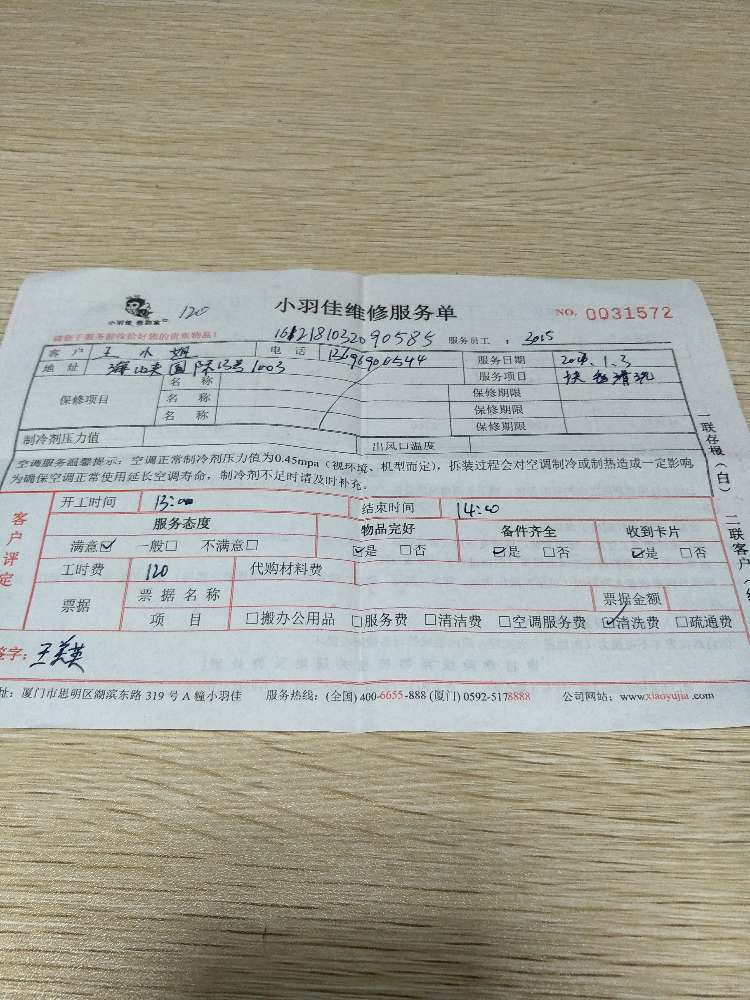 小羽佳 120
小羽佳维修服务单 NO. 0031572
请您于服务前收拾好您的贵重物品！ 1612181032090585 服务员工 : 3015
客 户 王小姐 电 话 服务日期 1.3
地 址 国际13号1003 服务项目 清洗
保修项目 名 称 保修期限
名 称 保修期限
名 称 保修期限
制冷剂压力值 出风口温度
空调服务温馨提示：空调正常制冷剂压力值为0.45mpa（视环境、机型而定），拆装过程会对空调制冷或制热造成一定影响
为确保空调正常使用延长空调寿命，制冷剂不足时请及时补充。
开工时间 13:00 结束时间 14:00
客户评定
服务态度 物品完好 备件齐全 收到卡片
满意☑ 一般□ 不满意□ ☑是 □否 ☑是 □否 ☑是 □否
工时费 120 代购材料费
票据 票 据 名 称 票据金额
项 目 □搬办公用品 □服务费 □清洁费 □空调服务费 ☑清洗费 □疏通费
签字: 王美英
址: 厦门市思明区湖滨东路 319 号 A 幢小羽佳 服务热线: (全国) 400-6655-888 (厦门) 0592-5178888 公司网站: www.xiaoyujia.com
一联存根（白）二联客户